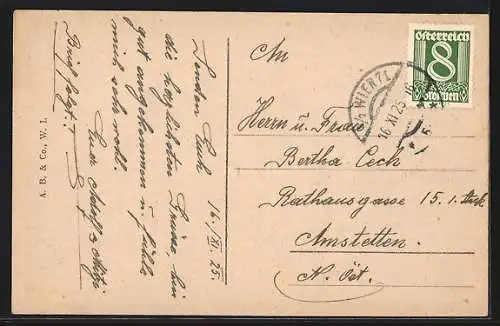 Senden Euch 16./XI. 25.
die herzlichsten Grüsse, bin
gut angekommen u. fühle
mich sehr wohl.
Euer Adolf &
Brief folgt!
A. B. & Co., W. I.
An
Herrn u. Frau
Bertha Cech
Rathausgasse 15. 1. Stck
Amstetten.
N. Öst.
Österreich
8
Groschen
WIEN 71
16 XI 25